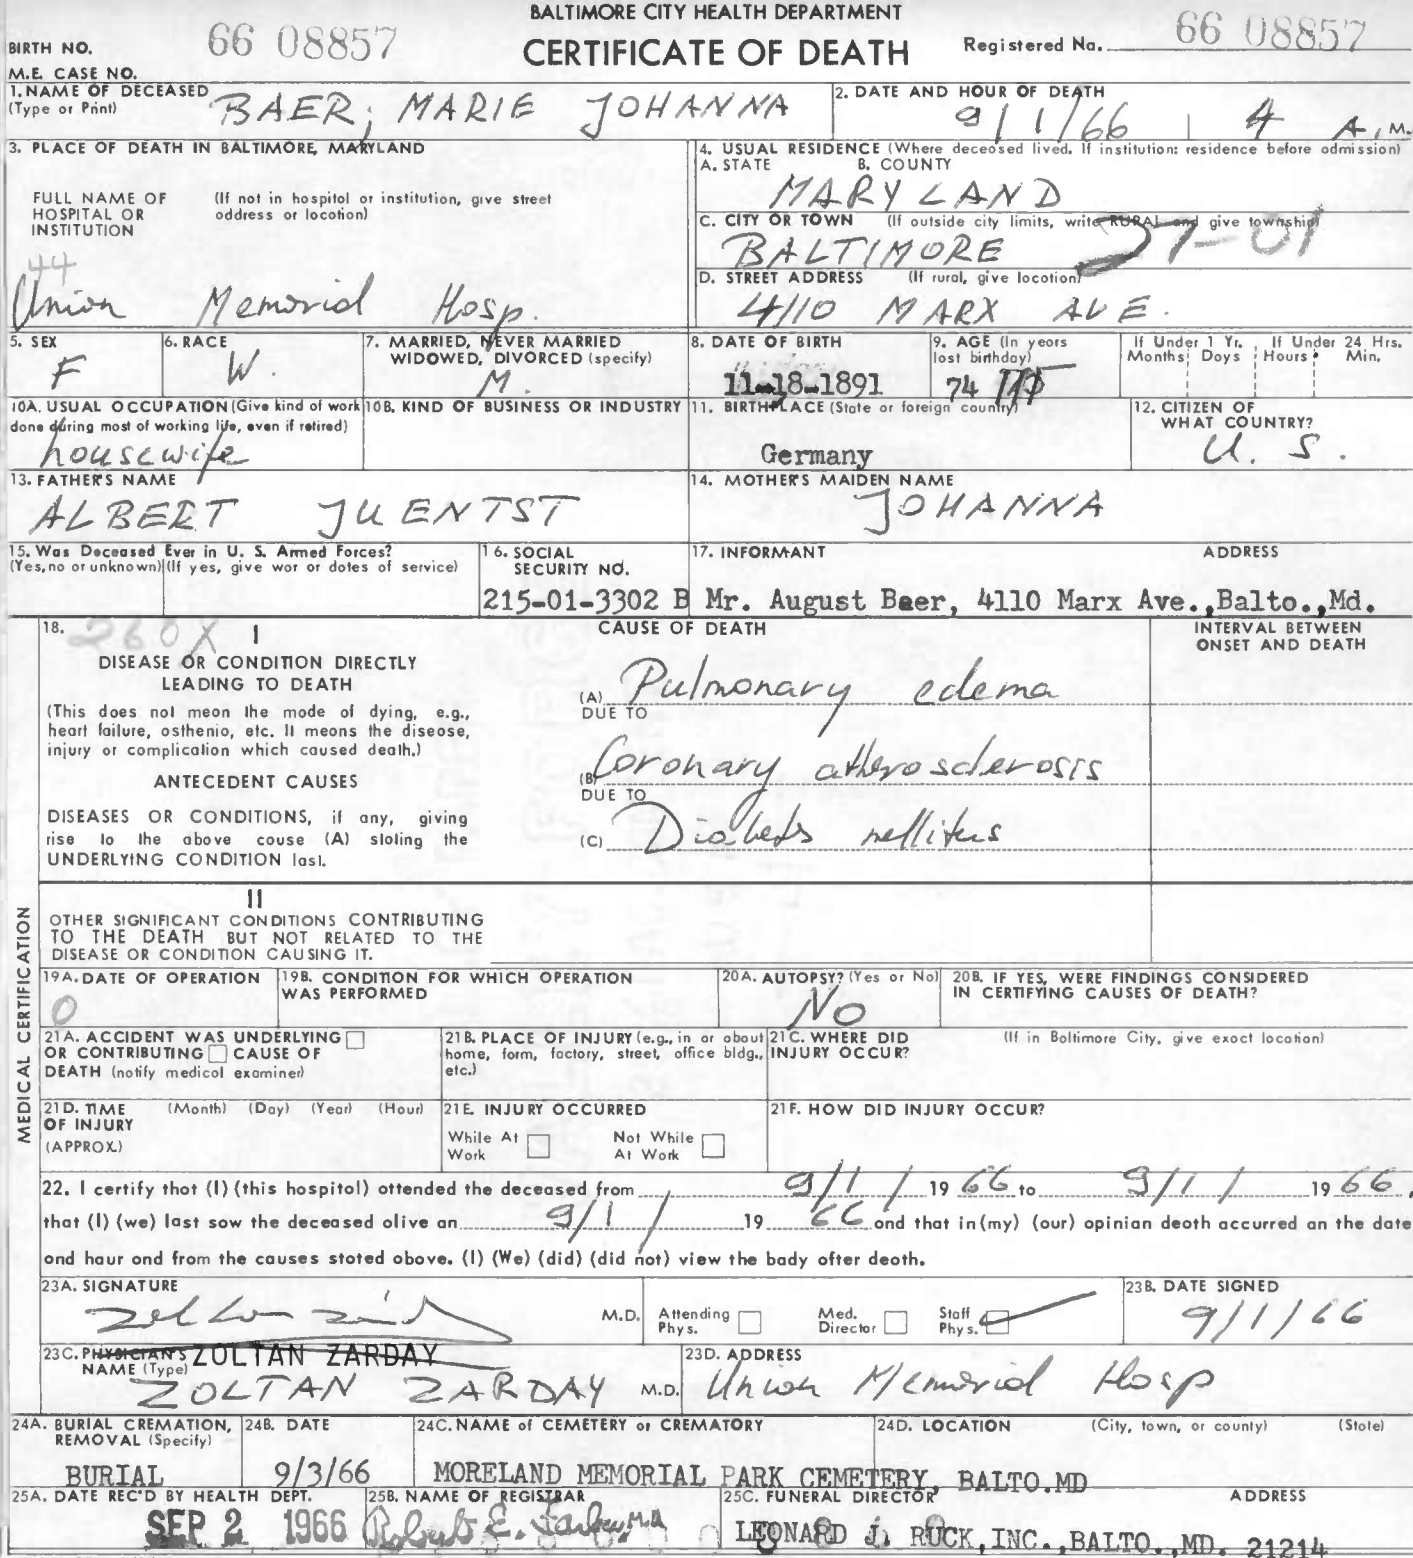 BALTIMORE CITY HEALTH DEPARTMENT
BIRTH NO. 66 08857 CERTIFICATE OF DEATH Registered No. 66 08857
M.E. CASE NO.
1. NAME OF DECEASED (Type or Print) BAER, MARIE JOHANNA
2. DATE AND HOUR OF DEATH 9/1/66 4 A.M.
3. PLACE OF DEATH IN BALTIMORE, MARYLAND
FULL NAME OF HOSPITAL OR INSTITUTION (If not in hospital or institution, give street address or location)
44
Union Memorial Hosp.
4. USUAL RESIDENCE (Where deceased lived. If institution: residence before admission)
A. STATE B. COUNTY
MARYLAND
C. CITY OR TOWN (If outside city limits, write RURAL and give township)
BALTIMORE 27-01
D. STREET ADDRESS (If rural, give location)
4110 MARX AVE.
5. SEX F
6. RACE W.
7. MARRIED, NEVER MARRIED WIDOWED, DIVORCED (specify) M.
8. DATE OF BIRTH 11-18-1891
9. AGE (In years last birthday) 74
If Under 1 Yr. Months Days
If Under 24 Hrs. Hours Min.
10A. USUAL OCCUPATION (Give kind of work done during most of working life, even if retired) housewife
10B. KIND OF BUSINESS OR INDUSTRY
11. BIRTHPLACE (State or foreign country) Germany
12. CITIZEN OF WHAT COUNTRY? U. S.
13. FATHER'S NAME ALBERT JUENTST
14. MOTHER'S MAIDEN NAME JOHANNA
15. Was Deceased Ever in U. S. Armed Forces? (Yes, no or unknown) (If yes, give war or dates of service)
16. SOCIAL SECURITY NO. 215-01-3302 B
17. INFORMANT ADDRESS
Mr. August Baer, 4110 Marx Ave., Balto., Md.
MEDICAL CERTIFICATION
18. 260X I
CAUSE OF DEATH
INTERVAL BETWEEN ONSET AND DEATH
DISEASE OR CONDITION DIRECTLY LEADING TO DEATH
(This does not mean the mode of dying, e.g., heart failure, asthenia, etc. It means the disease, injury or complication which caused death.)
(A) Pulmonary edema
DUE TO
ANTECEDENT CAUSES
(B) Coronary atherosclerosis
DUE TO
DISEASES OR CONDITIONS, if any, giving rise to the above cause (A) stating the UNDERLYING CONDITION last.
(C) Diabets mellitus
II
OTHER SIGNIFICANT CONDITIONS CONTRIBUTING TO THE DEATH BUT NOT RELATED TO THE DISEASE OR CONDITION CAUSING IT.
19A. DATE OF OPERATION 0
19B. CONDITION FOR WHICH OPERATION WAS PERFORMED
20A. AUTOPSY? (Yes or No) NO
20B. IF YES, WERE FINDINGS CONSIDERED IN CERTIFYING CAUSES OF DEATH?
21A. ACCIDENT WAS UNDERLYING OR CONTRIBUTING CAUSE OF DEATH (notify medical examiner)
21B. PLACE OF INJURY (e.g., in or about home, farm, factory, street, office bldg., etc.)
21C. WHERE DID INJURY OCCUR? (If in Baltimore City, give exact location)
21D. TIME OF INJURY (APPROX.) (Month) (Day) (Year) (Hour)
21E. INJURY OCCURRED
While At Work Not While At Work
21F. HOW DID INJURY OCCUR?
22. I certify that (I) (this hospital) attended the deceased from 9/1/ 19 66 to 9/1/ 19 66,
that (I) (we) last saw the deceased alive on 9/1/ 19 66 and that in (my) (our) opinion death occurred on the date
and hour and from the causes stated above. (I) (We) (did) (did not) view the body after death.
23A. SIGNATURE M.D. Attending Phys. Med. Director Staff Phys.
23B. DATE SIGNED 9/1/66
23C. PHYSICIAN'S NAME (Type) ZOLTAN ZARDAY
ZOLTAN ZARDAY M.D.
23D. ADDRESS Union Memorial Hosp
24A. BURIAL CREMATION, REMOVAL (Specify) BURIAL
24B. DATE 9/3/66
24C. NAME of CEMETERY or CREMATORY 24D. LOCATION (City, town, or county) (State)
MORELAND MEMORIAL PARK CEMETERY, BALTO.MD
25A. DATE REC'D BY HEALTH DEPT. SEP 2 1966
25B. NAME OF REGISTRAR Robert E. Farber, M.D.
25C. FUNERAL DIRECTOR ADDRESS
LEONARD J. RUCK, INC., BALTO., MD. 21214